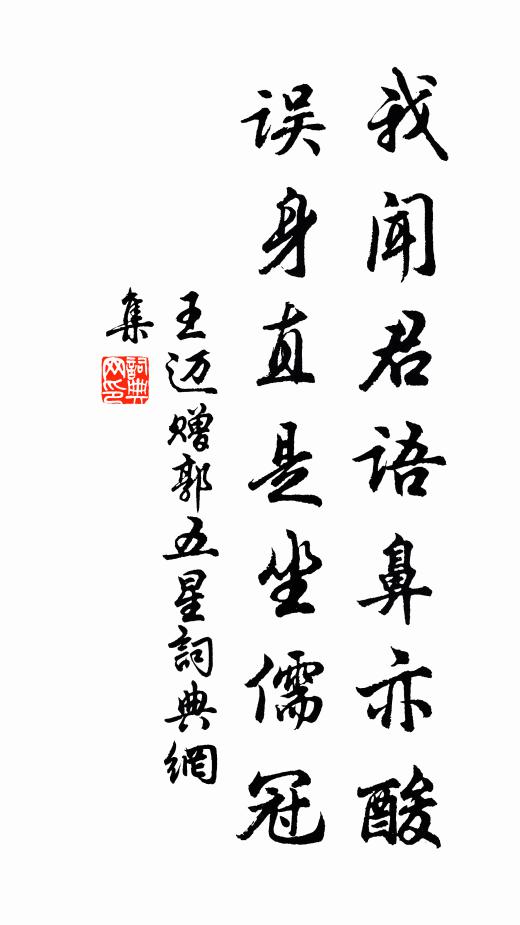 我闻君语鼻亦酸
误身直是坐儒冠
王迈赠郭五星詞典網
集
詞典
网印